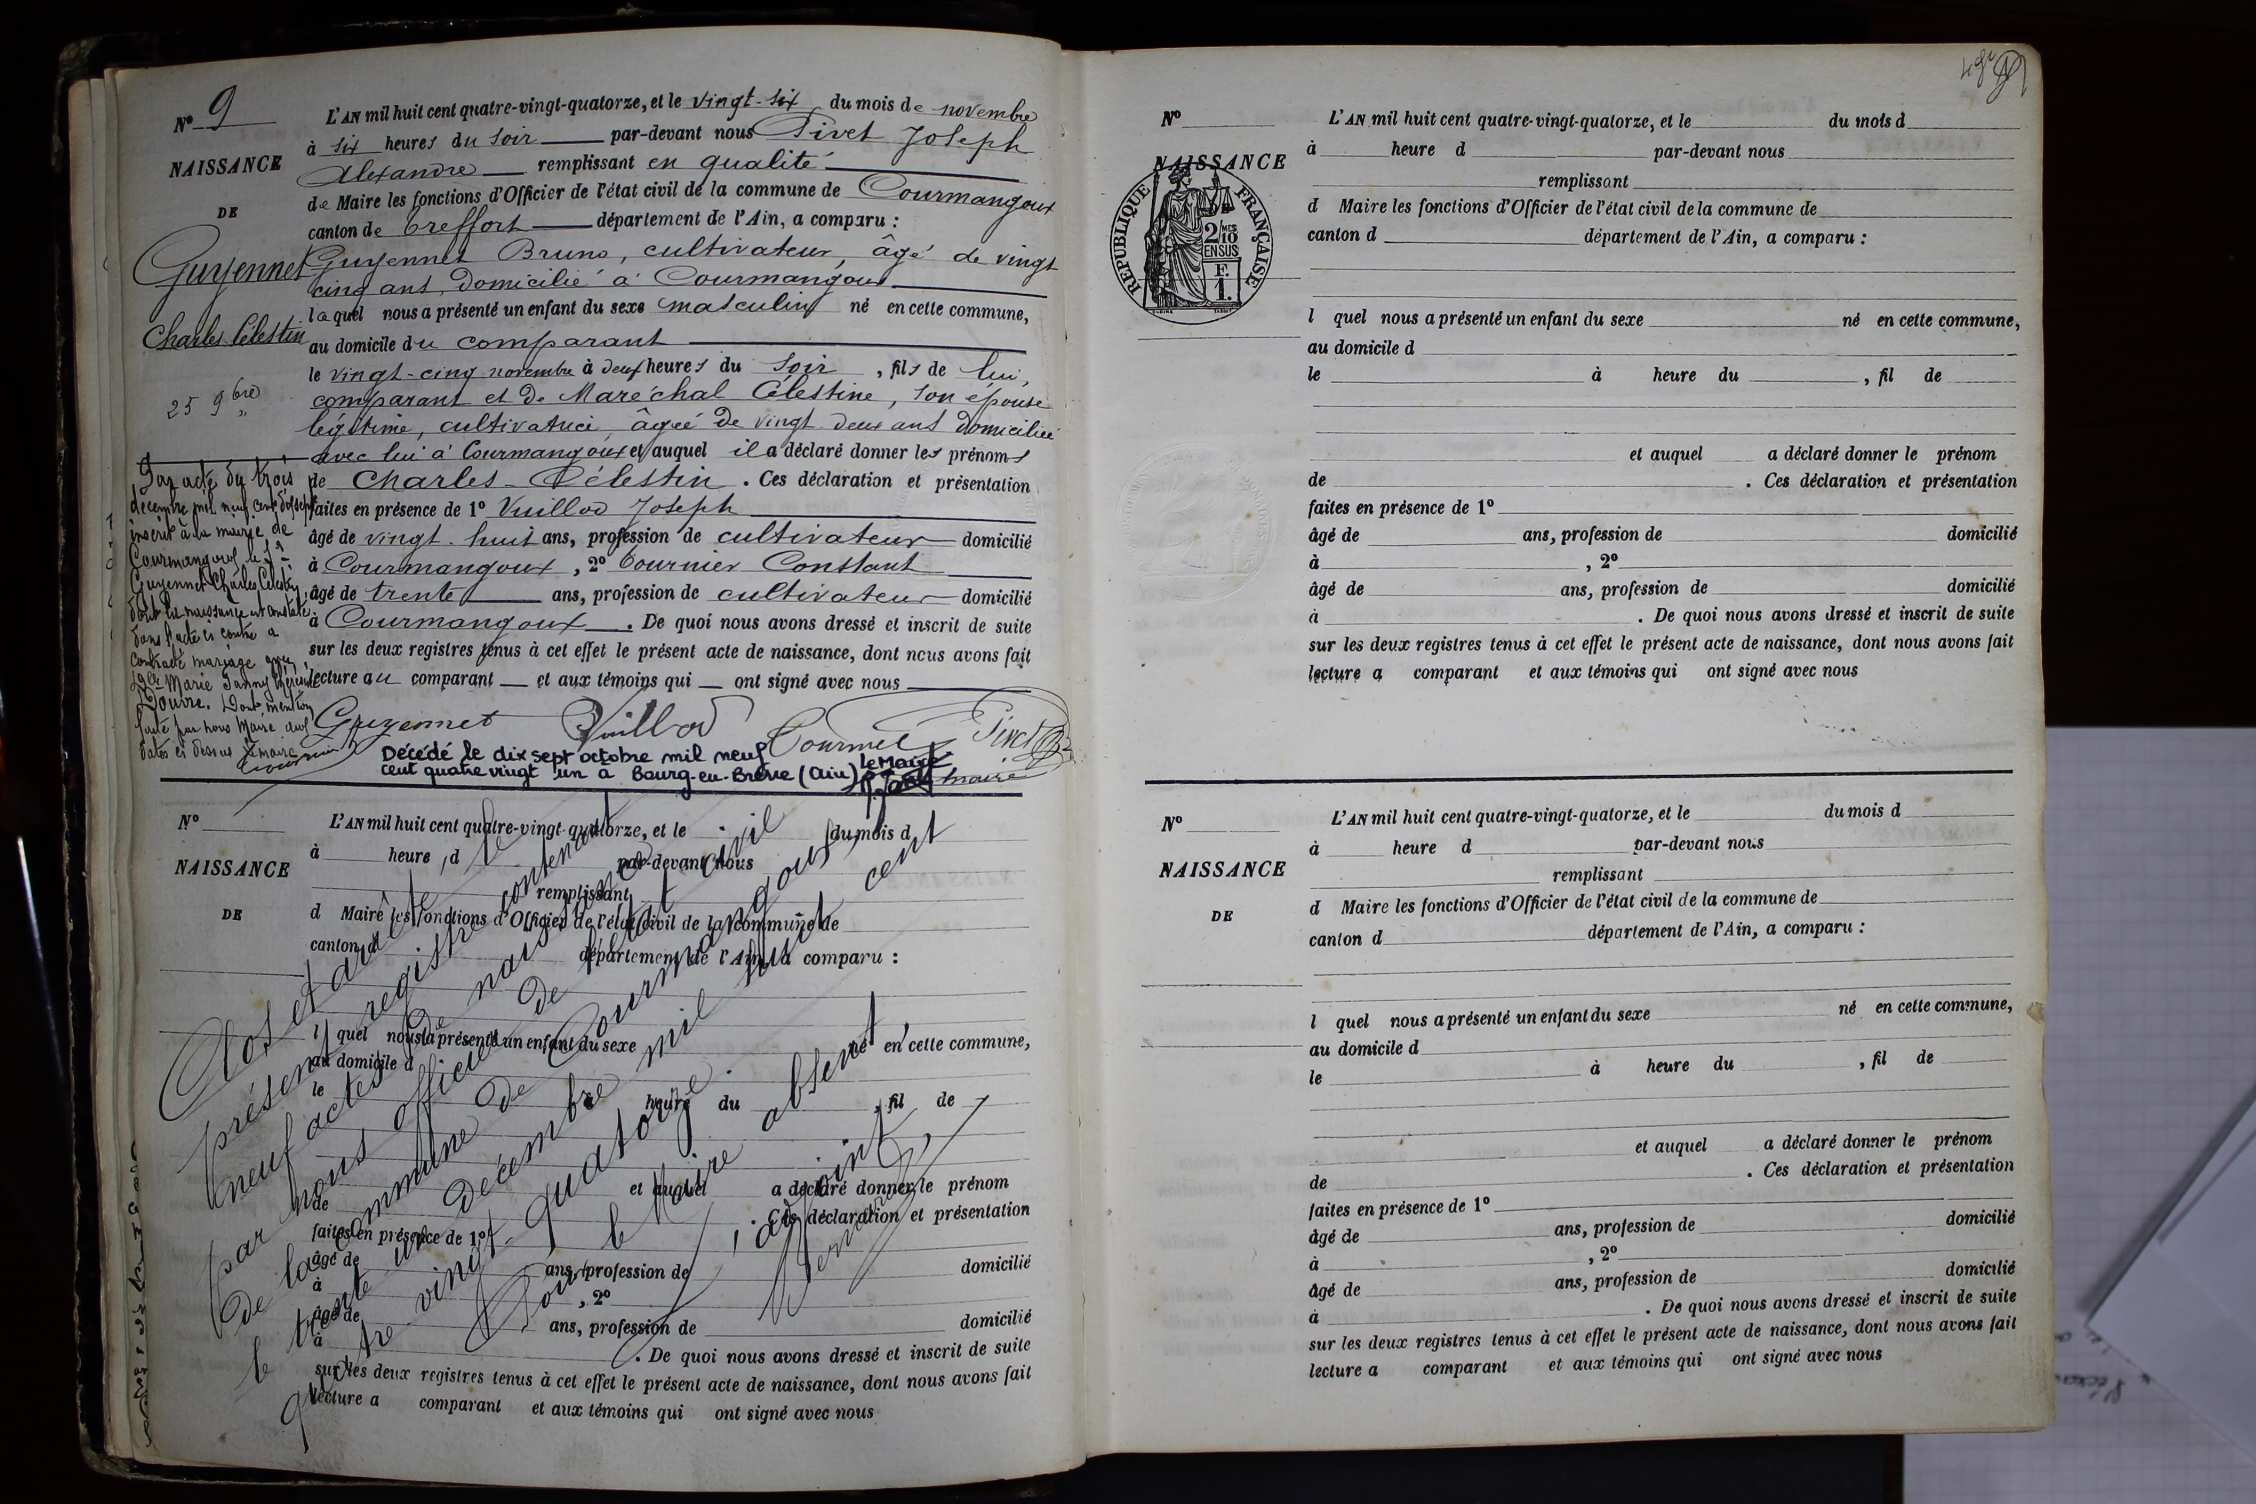 N° 9
NAISSANCE
DE
Guyennet
Charles Célestin
25 9bre
L'AN mil huit cent quatre-vingt-quatorze, et le vingt-six du mois de novembre
à six heures du soir par-devant nous Pivet Joseph
Alexandre remplissant en qualité
de Maire les fonctions d'Officier de l'état civil de la commune de Courmangoux
canton de Treffort département de l'Ain, a comparu :
Guyennet Bruno, cultivateur, âgé de vingt
cinq ans, domicilié à Courmangoux
lequel nous a présenté un enfant du sexe masculin né en cette commune,
au domicile du comparant
le vingt-cinq novembre à deux heures du soir, fils de lui,
comparant et de Maréchal Célestine, son épouse
légitime, cultivatrice, âgée de vingt deux ans domiciliée
avec lui à Courmangoux et auquel il a déclaré donner les prénoms
de Charles-Célestin. Ces déclaration et présentation
faites en présence de 1° Vuillod Joseph
âgé de vingt-huit ans, profession de cultivateur domicilié
à Courmangoux, 2° Cournier Constant
âgé de trente ans, profession de cultivateur domicilié
à Courmangoux. De quoi nous avons dressé et inscrit de suite
sur les deux registres tenus à cet effet le présent acte de naissance, dont nous avons fait
lecture au comparant et aux témoins qui ont signé avec nous
Guyennet Vuillod Pivet
Par acte du trois
décembre mil neuf cent dix sept
inscrit à la mairie de
Courmangoux le Sr
Guyennet Charles Célestin,
dont la naissance est constatée
dans l'acte ci contre a
contracté mariage avec
Marie
Dont mention
faite par nous Maire aux
dates ci dessus le maire
Décédé le dix sept octobre mil neuf
cent quatre vingt un à Bourg-en-Bresse (Ain) Le Maire
N°
NAISSANCE
DE
L'AN mil huit cent quatre-vingt-quatorze, et le du mois d
à heure d par-devant nous
remplissant
d Maire les fonctions d'Officier de l'état civil de la commune de
canton d département de l'Ain, a comparu :
l quel nous a présenté un enfant du sexe né en cette commune,
au domicile d
le à heure du , fil de
et auquel a déclaré donner le prénom
de . Ces déclaration et présentation
faites en présence de 1°
âgé de ans, profession de domicilié
à , 2°
âgé de ans, profession de domicilié
à . De quoi nous avons dressé et inscrit de suite
sur les deux registres tenus à cet effet le présent acte de naissance, dont nous avons fait
lecture a comparant et aux témoins qui ont signé avec nous
Clos et arrêté le
présent registre contenant
neuf actes de naissance
par nous officier de l'état civil
de la commune de Courmangoux,
le trente un décembre mil huit cent
quatre vingt-quatorze.
Pour le Maire absent,
l'adjoint,
N°
NAISSANCE
DE
REPUBLIQUE FRANÇAISE
2/10 MES
EN SUS
F.
1.
L'AN mil huit cent quatre-vingt-quatorze, et le du mois d
à heure d par-devant nous
remplissant
d Maire les fonctions d'Officier de l'état civil de la commune de
canton d département de l'Ain, a comparu :
l quel nous a présenté un enfant du sexe né en cette commune,
au domicile d
le à heure du , fil de
et auquel a déclaré donner le prénom
de . Ces déclaration et présentation
faites en présence de 1°
âgé de ans, profession de domicilié
à , 2°
âgé de ans, profession de domicilié
à . De quoi nous avons dressé et inscrit de suite
sur les deux registres tenus à cet effet le présent acte de naissance, dont nous avons fait
lecture a comparant et aux témoins qui ont signé avec nous
N°
NAISSANCE
DE
L'AN mil huit cent quatre-vingt-quatorze, et le du mois d
à heure d par-devant nous
remplissant
d Maire les fonctions d'Officier de l'état civil de la commune de
canton d département de l'Ain, a comparu :
l quel nous a présenté un enfant du sexe né en cette commune,
au domicile d
le à heure du , fil de
et auquel a déclaré donner le prénom
de . Ces déclaration et présentation
faites en présence de 1°
âgé de ans, profession de domicilié
à , 2°
âgé de ans, profession de domicilié
à . De quoi nous avons dressé et inscrit de suite
sur les deux registres tenus à cet effet le présent acte de naissance, dont nous avons fait
lecture a comparant et aux témoins qui ont signé avec nous